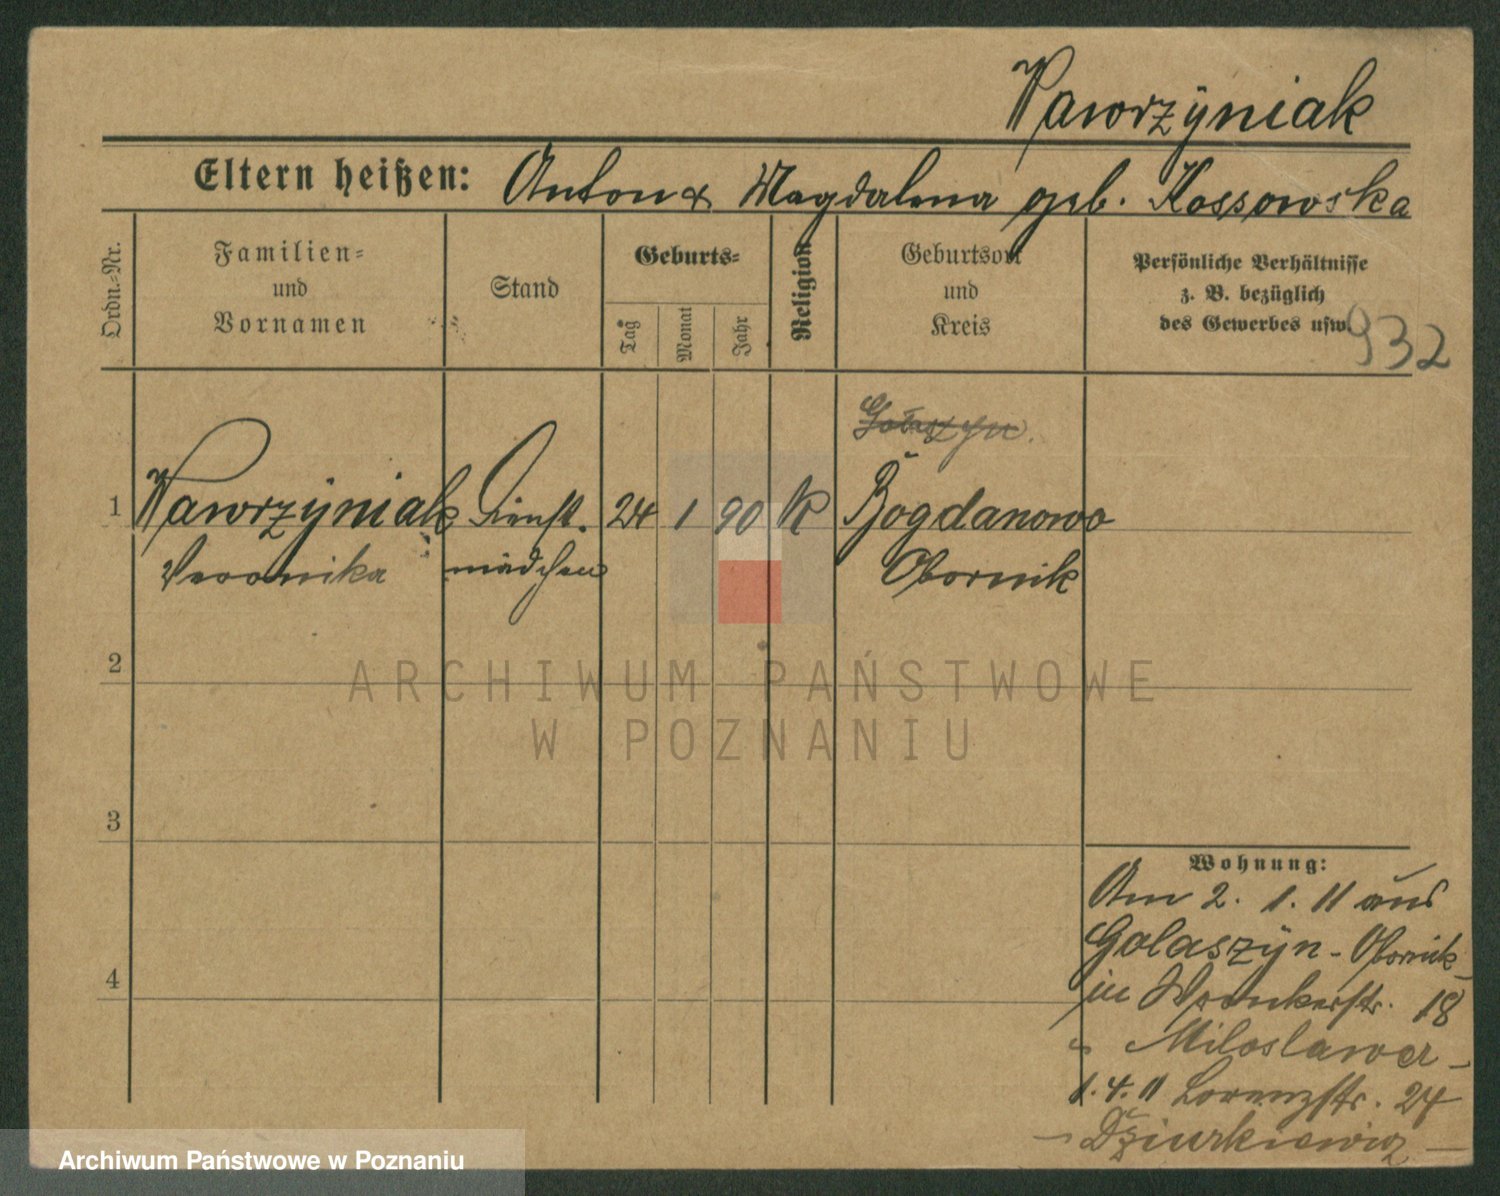 Wawrzÿniak
Eltern heißen: Anton & Magdalena geb. Kossowska
Ordn.-Nr.
Familien-
und
Vornamen
Stand
Geburts-
Tag
Monat
Jahr
Religion
Geburtsort
und
Kreis
Persönliche Verhältnisse
z. B. bezüglich
des Gewerbes usw.
932
Gołaszyn.
1 Wawrzÿniak Dienst. 24 1 90 K Bogdanowo
Veronika mädchen Obornik
2
ARCHIWUM PAŃSTWOWE
W POZNANIU
3
Wohnung:
Am 2. 1. 11 aus
Golaszÿn - Obornik
4
in Wronkerstr. 18
" Miloslawer -
1. 4. 11 Lorenzstr. 24
- Dziurkiewicz -
Archiwum Państwowe w Poznaniu